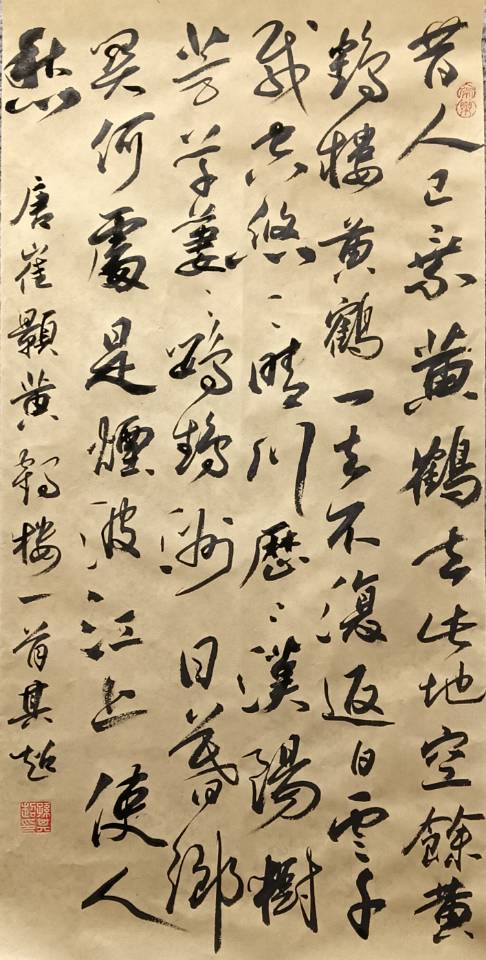 昔人已乘黄鶴去此地空餘黄
鶴樓黄鶴一去不復返白雲千
載空悠〻晴川歷〻漢陽樹
芳草萋〻鸚鵡洲日暮鄉
關何處是煙波江上使人
愁
唐崔顥黄鶴樓一首其超